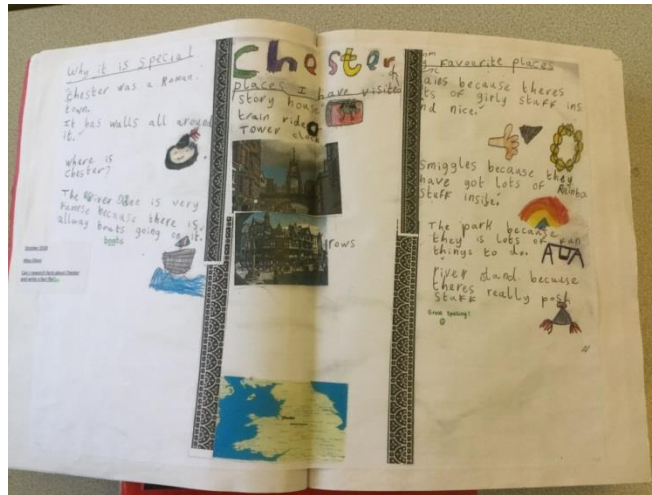 Why it is special
Chester was a Roman
town.
It has walls all around
it.
where is
Chester?
The River Dee is very
because there is
allway boats going on it.
boats
October 2020
and write a fact file
Chester
places I have visited
Story house
train ride
Tower clock
rows
favourite places
because theres
of girly stuff ins
nd nice.
Smiggles because they
have got lots of Rainbo
Stuff inside.
The park because
they is lots of fun
things to do.
river island because
theres really posh
Stuff
Great Spelling!